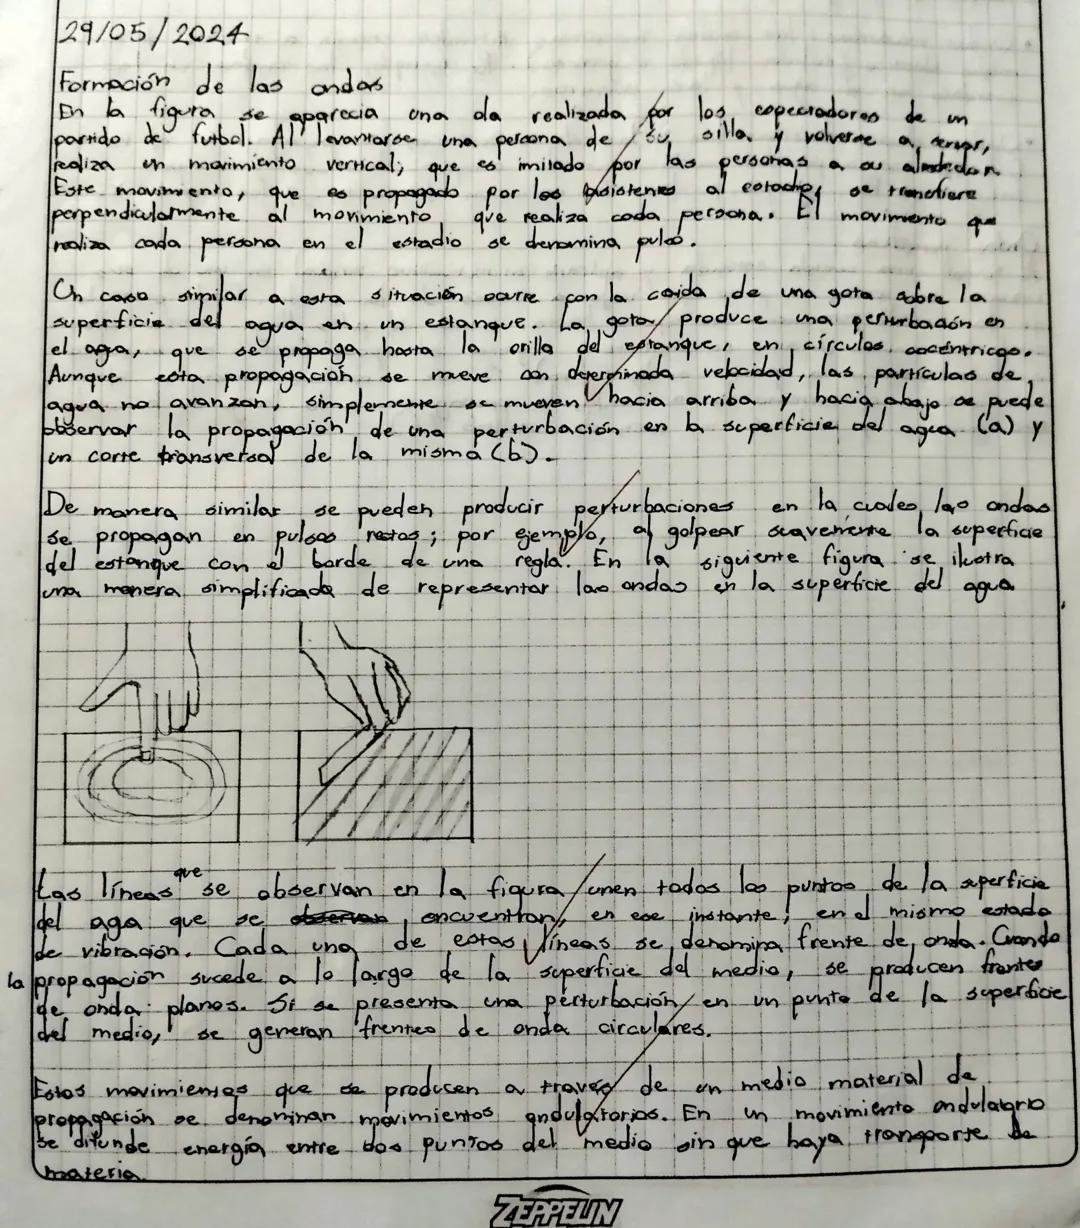 29/05/2024
Formación de las ondas
En la figura se aparecia una ola realizada por los espectadores de un
partido de futbol. Al levantarse una persona de su silla y volverse a
realiza un movimiento vertical, que es imitado por las personas a su alrededor.
Este movimiento, que es propagado por los asistentes al estadio, se transfiere
perpendicularmente al movimiento que realiza cada persona. El movimiento que
realiza cada persona en el estadio se denomina pulso.
Un caso similar a esta situación ocurre con la caida de una gota sobre la
superficie del agua en un estanque. La gota produce una perturbación en
el agua, que se propaga hasta la orilla del estanque, en círculos cocéntricos.
Aunque esta propagación se mueve con determinada velocidad, las partículas de
agua no avanzan, simplemente se mueven hacia arriba y hacia abajo se puede
observar la propagación de una perturbación en la superficie del agua (a) y
un corte transversal de la misma (b).
De manera similar se pueden producir perturbaciones en la cuales las ondas
se propagan en pulsos rectos; por ejemplo, al golpear suavemente la superficie
del estanque con el borde de una regla. En la siguiente figura se ilustra
una manera simplificada de representar las ondas en la superficie del agua
Las líneas que se observan en la figura unen todos los puntos de la superficie
del aga que se encuentran, en ese instante, en el mismo estado
de vibración. Cada una de estas líneas se denomina frente de onda. Cuando
la propagación sucede a lo largo de la superficie del medio, se producen frentes
de onda planos. Si se presenta una perturbación en un punto de la superficie
del medio, se generan frentes de onda circulares.
Estos movimientos que se producen a través de un medio material de
propagación se denominan movimientos ondulatorios. En un movimiento ondulatorio
se difunde energía entre dos puntos del medio sin que haya transporte de
materia.
ZEPPELIN